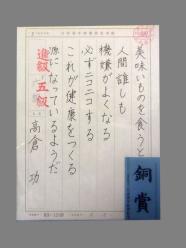 美味いものを食うと
人間誰しも
機嫌がよくなる
必ずニコニコする
これが健康をつくる
源になっているようだ
高倉 功
進級 五級
銅賞